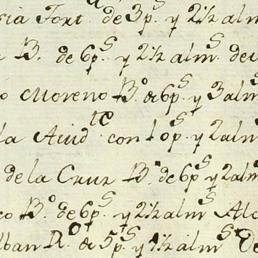 ria Fort de 3p.s y 2½ alm
B.o de 6p.s y 2½ alm.s de
o Moreno B.o de 6p.s y 3 alm
la Aiud.te con 10p.s y 2 alm
de la Cruz B.o de 6p.s y 2 alm
co B.o de 6p.s y 2½ alm.s Alo
lban R.o de 5p.s y 4½ alm.s De